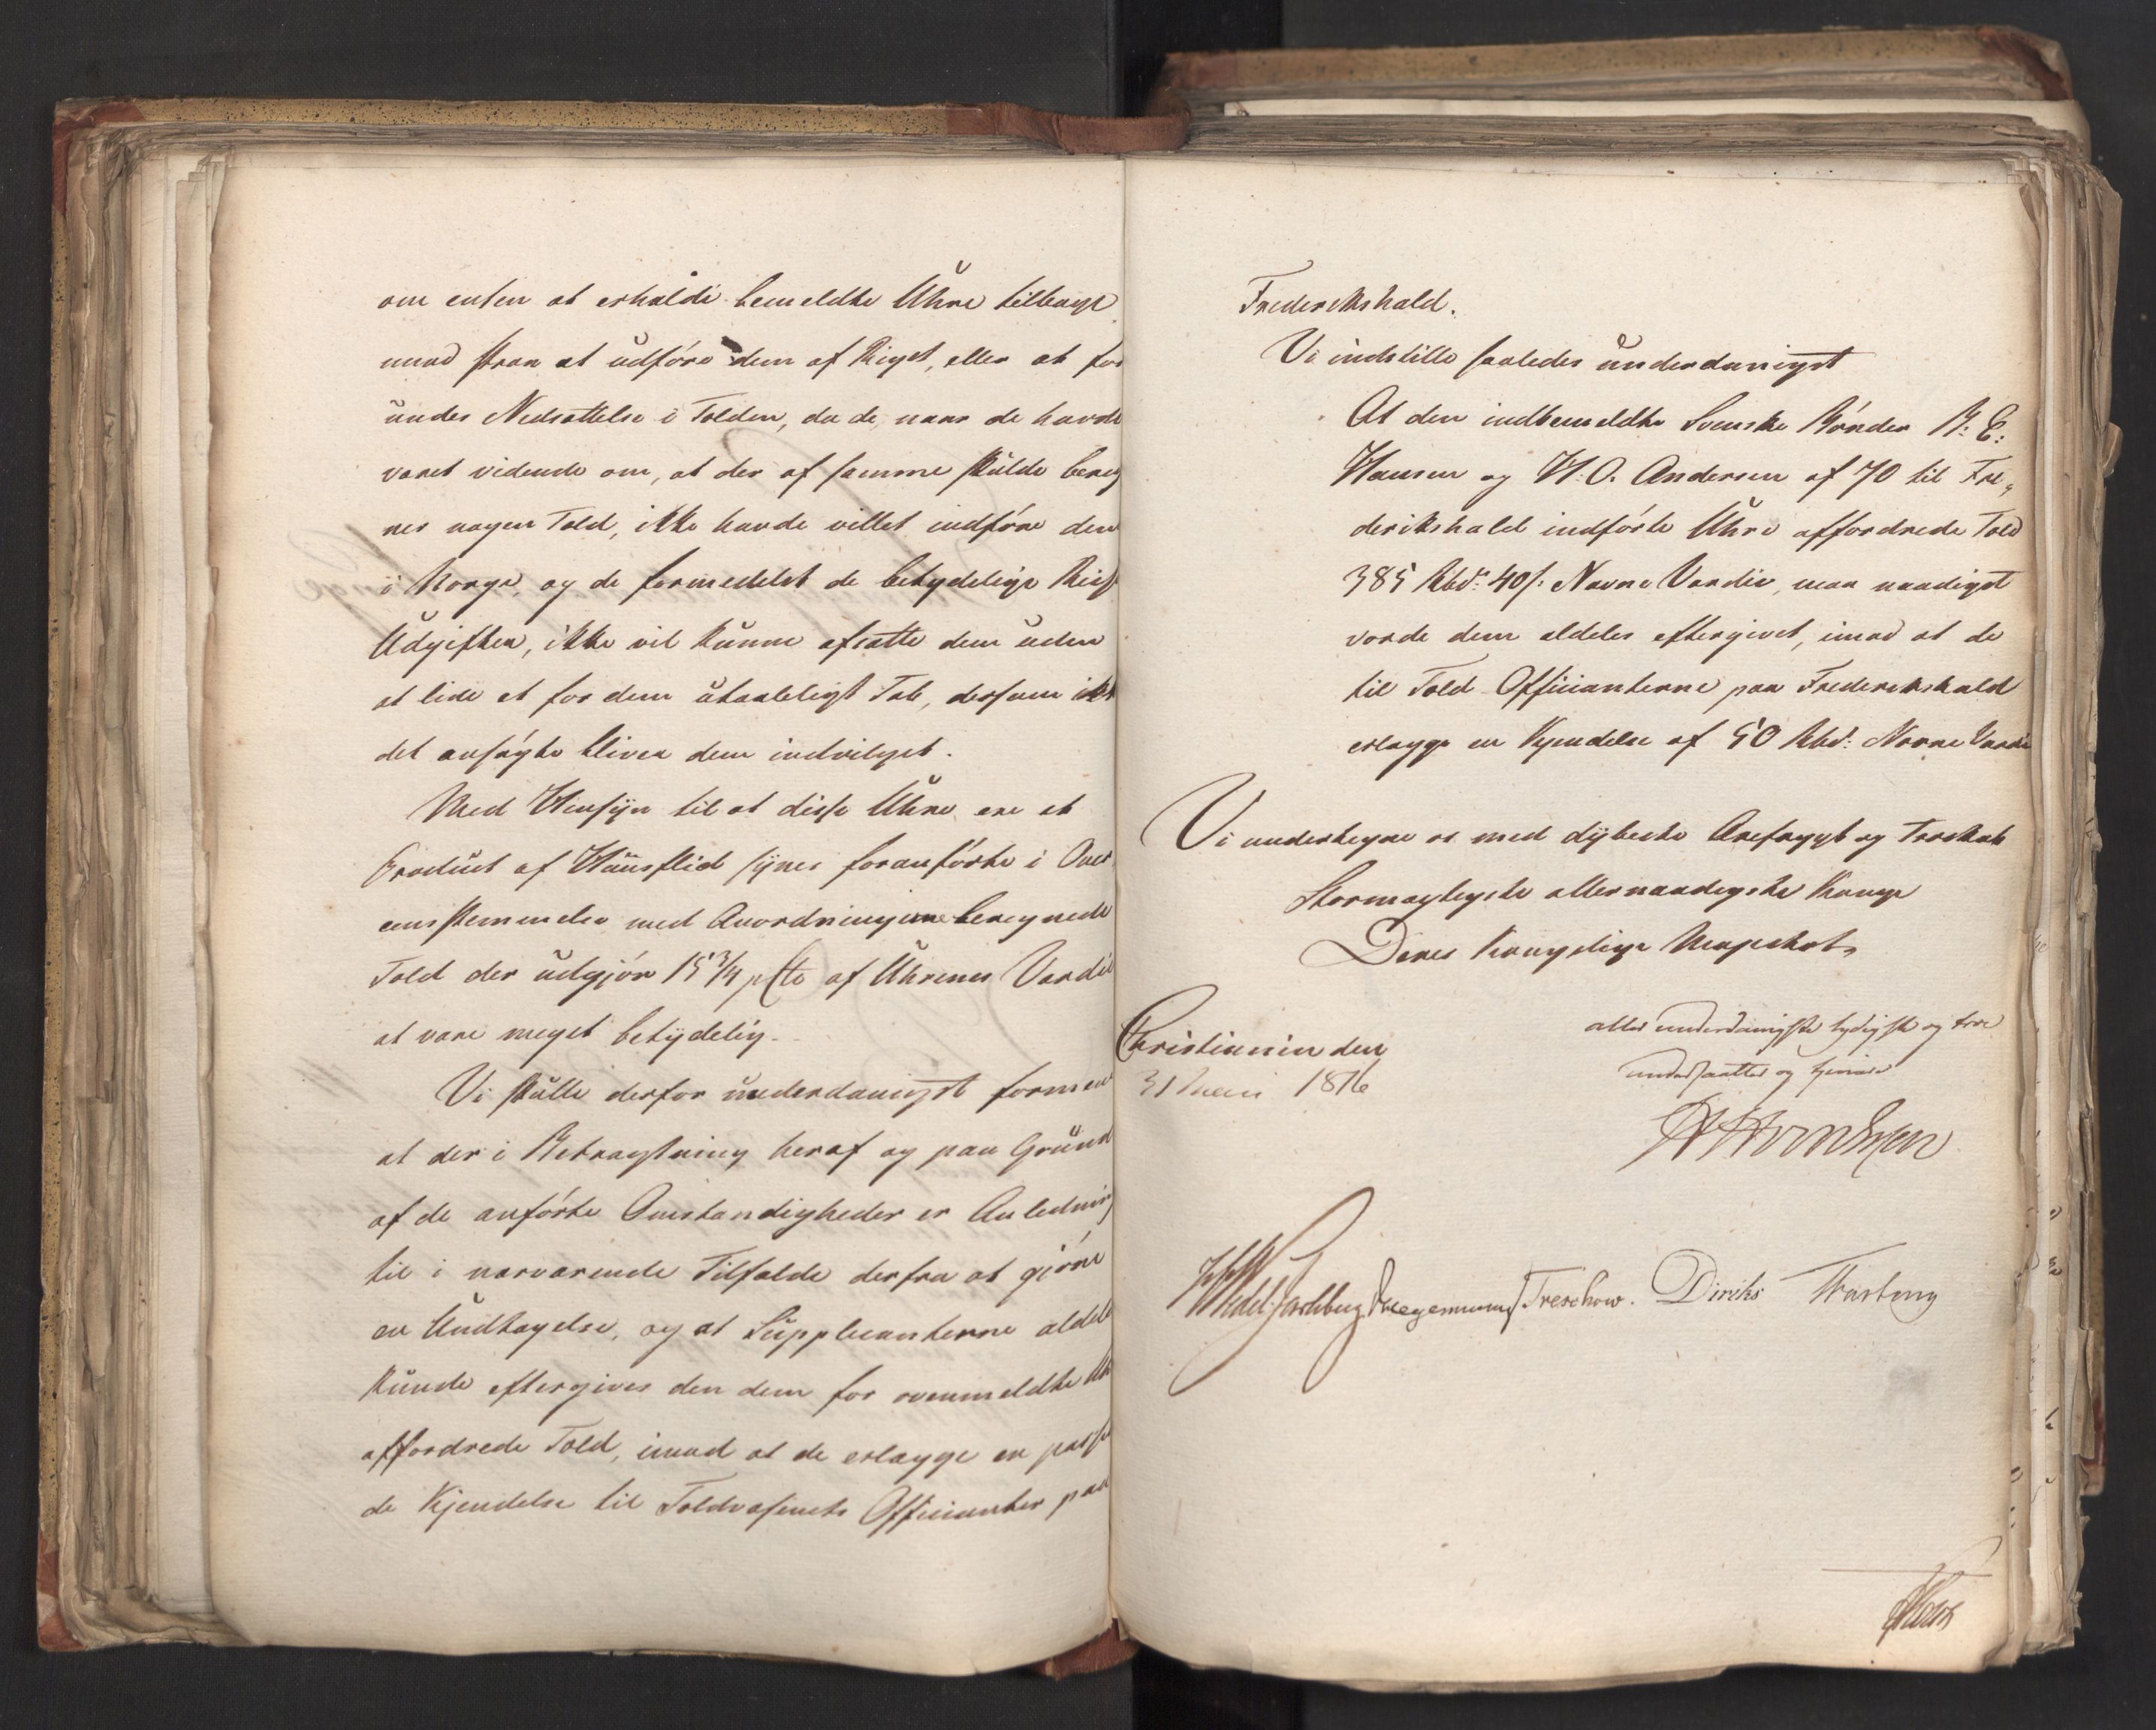 om enten at erholde bemeldte Uhre tilbage
mod strax at udføre dem af Riget, eller at for
undes Nedsættelse i Tolden, da de, naar de havde
været vidende om, at der af samme skulde bereg
nes nogen Told, ikke havde villet indføre dem
i Norge, og de formedelst de betydelige Reise
Udgifter, ikke vil kunne afsætte dem uden
at lide et for dem utaaleligt Tab, dersom ikke
det ansøgte bliver dem indvilget.
Med Hensyn til at disse Uhre ere et
Product af Huusflid synes foranførte i Over
eensstemmelse med Anordningerne beregnede
Told der udgjør 15 3/4 pCto af Uhrenes Værdie
at være meget betydelig.
Vi skulle derfor underdanigst formene
at der i Betragtning heraf og paa Grund
af de anførte Omstændigheder er Anledning
til i nærværende Tilfælde derfra at gjøre
en Undtagelse, og at Supplicanterne aldeles
kunde eftergives den dem for ovenmeldte Uhre
affordrede Told, imod at de erlægge en passen
de Kjendelse til Toldvæsenets Officianter paa
Frederikshald.
Vi indstille saaledes underdanigst
At den indbemeldte Svenske Bønder B: E:
Hansen og H: O. Andersen af 70 til Fre„
derikshald indførte Uhre affordrede Told
385 Rbd: 40 s: Navne Værdie, maa naadigst
vorde dem aldeles eftergivet, imod at de
til Told Officianterne paa Frederikshald
erlægge en Kjendelse af 50 Rbd: Navne Værdie
Vi undertegne os med dybeste Ærefrygt og Troskab
Stormægtigste allernaadigste Konge
Deres Kongelige Majestæts
Christiania den
31 1816
allerunderdanigste lydigste og troe
undersaatter og tjenere
Wedel Jarlsberg Treschow. Diriks